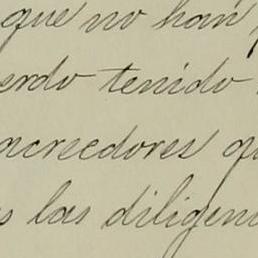 que no han
erdo tenido
acreedores qu
s las diligen